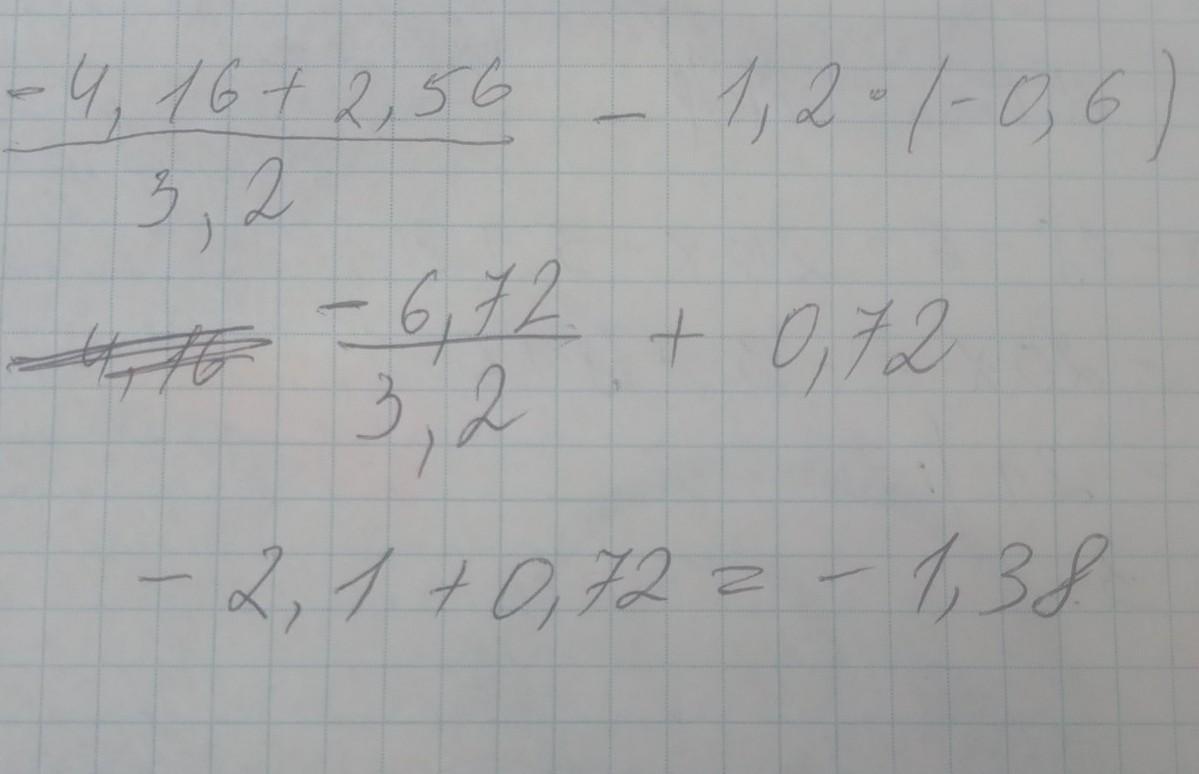 -4,16+2,56 - 1,2·(-0,6)
3,2
4,16 -6,72 + 0,72
3,2
-2,1+0,72=-1,38